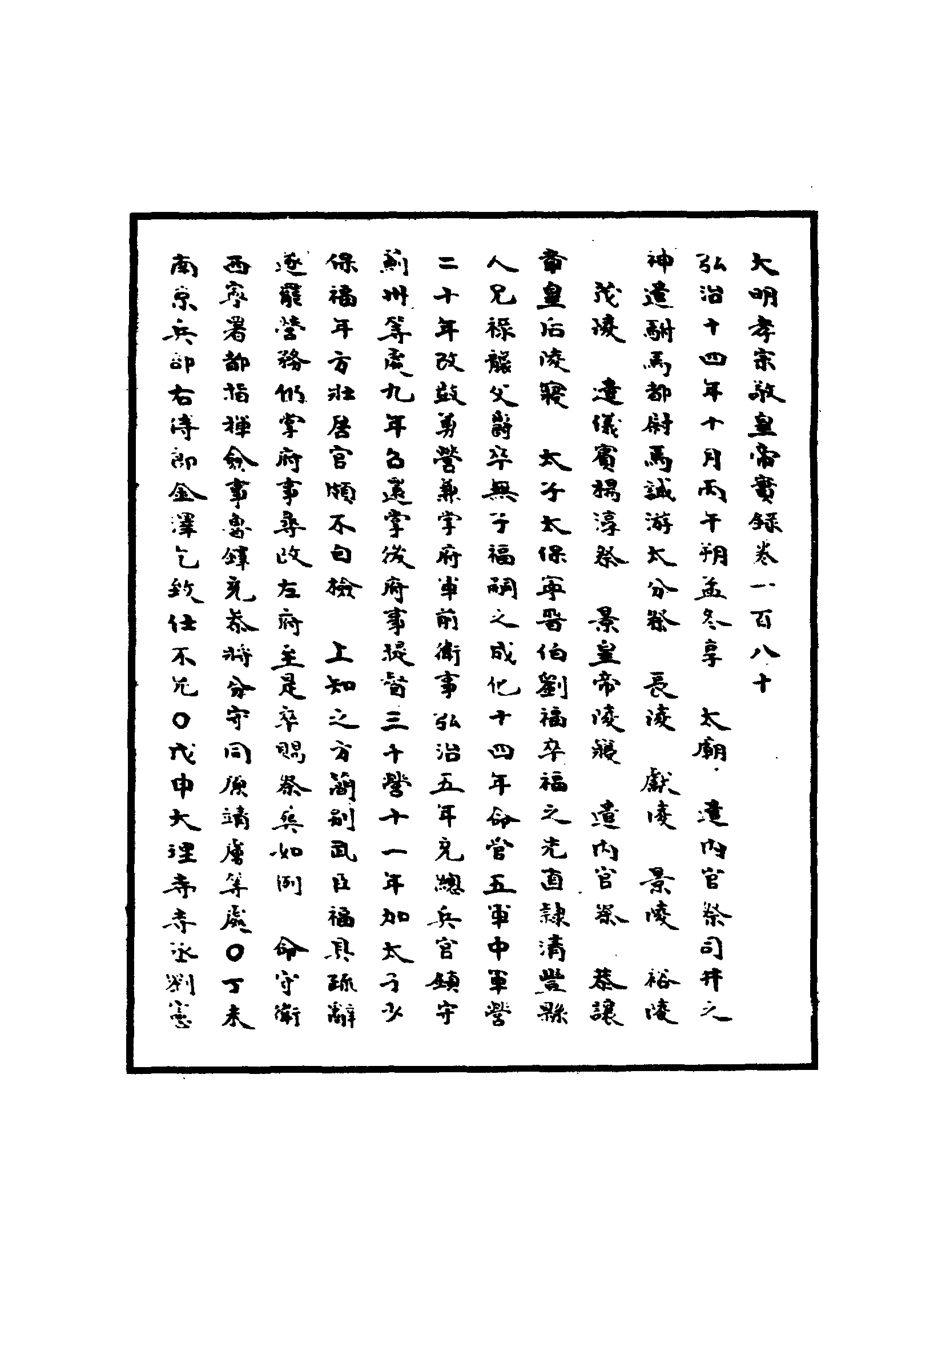 大明孝宗敬皇帝實錄卷一百八十
弘治十四年十月丙午朔孟冬享　太廟　遣內官祭司井之
神遣駙馬都尉馬誠游太分祭　長陵　獻陵　景陵　裕陵
茂陵　遣儀賓楊淳祭　景皇帝陵寢　遣內官祭　恭讓
章皇后陵寢　太子太保寧晉伯劉福卒福之先直隸清豐縣
人兄祿襲父爵卒無子福嗣之成化十四年命管五軍中軍營
二十年改鼓勇營兼掌府軍前衛事弘治五年充總兵官鎮守
薊州等處九年召還掌後府事提督三千營十一年加太子少
保福年方壯居官頗不自檢　上知之方簡別武臣福具疏辭
遂罷營務仍掌府事尋改左府至是卒賜祭葬如例　命守衛
西寧署都指揮僉事魯鏵充叅將分守同原靖虜等處〇丁未
南京兵部右侍郎金澤乞致仕不允〇戊申大理寺寺丞劉憲